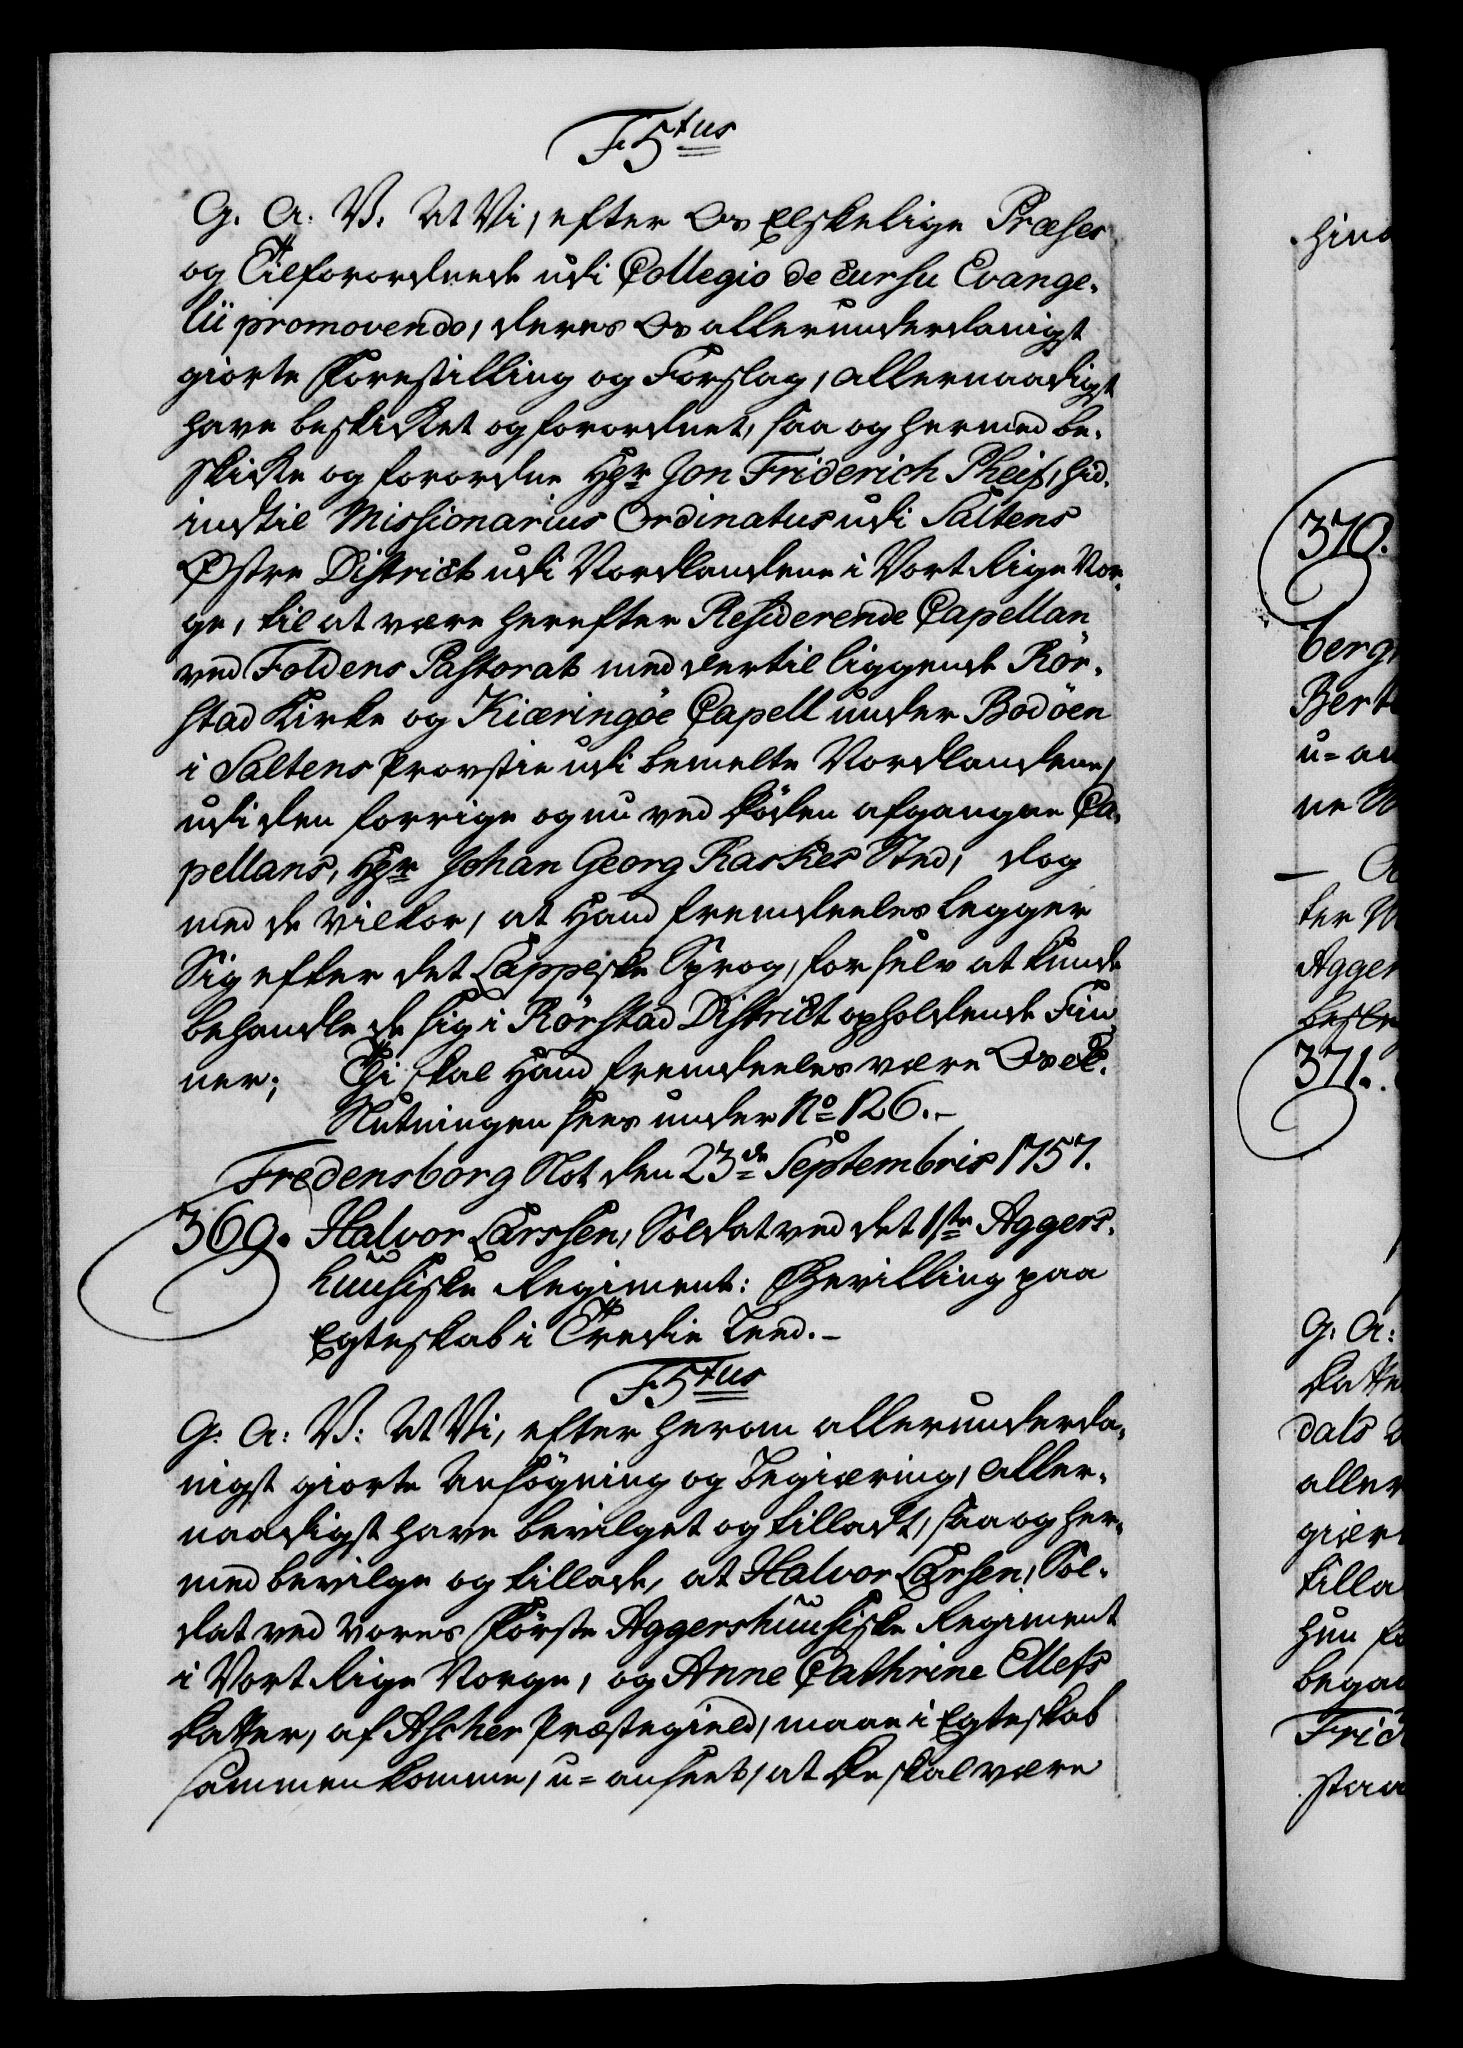 F. 5tus
G. A: V. At Vi, efter Os Elskelige Præses
og Tilforordnede udi Collegio de cursu Evange-
lii promovendo, deres Os allerunderdanigst
giorte Forestilling og Forslag, allernaadigst
have beskikket og forordnet, saa og hermed be-
skikke og forordne Hgr Jon Friderich Pheif, hid-
indtil Missionarius Ordinatus udi Saltens
Østre District udi Nordlandene i Vort Rige Nor-
ge, til at være herefter Residerende Capellan
ved Foldens Pastorat med dertil liggende Rör-
stad Kirke og Kiæringöe Capell under Bodöen
i Saltens Provstie udi bemelte Nordlandene,
udi den forrige og nu ved Döden afgangne Ca-
pellans, Hgr Johan Georg Raskes Sted, dog
med de Vilkor, at Hand fremdeeles legger
Sig efter det Lappiske Sprog, for selv at kunde
behandle de sig i Rörstad District opholdende Fin
ner; Thi skal Hand fremdeeles være Os etc.
Slutningen sees under No 126.-
Fredensborg Slot den 23de Septembris 1757.
369. Halvor Larssen, Soldat ved det 1ste Aggers-
huusiske Regiment: Bevilling paa
Egteskab i Tredie Leed.-
F. 5tus
G. A: V: At Vi, efter herom allerunderda-
nigst giorte Ansögning og Begiæring, aller-
naadigst have bevilget og tilladt, saa og her-
med bevilge og tillade, at Halvor Larsen, Sol-
dat ved Vores Förste Aggershuusiske Regiment
i Vort Rige Norge, og Anne Cathrine Ellefs
Datter, af Ascher Præstegield, maae i Egteskab
sammen komme, u=anseet, at De skal være
370.
berg
Bert
u=an
ne
ter
Agger
371.
G. A:
dals
aller
giær
tilla
hun
begaa
Frid